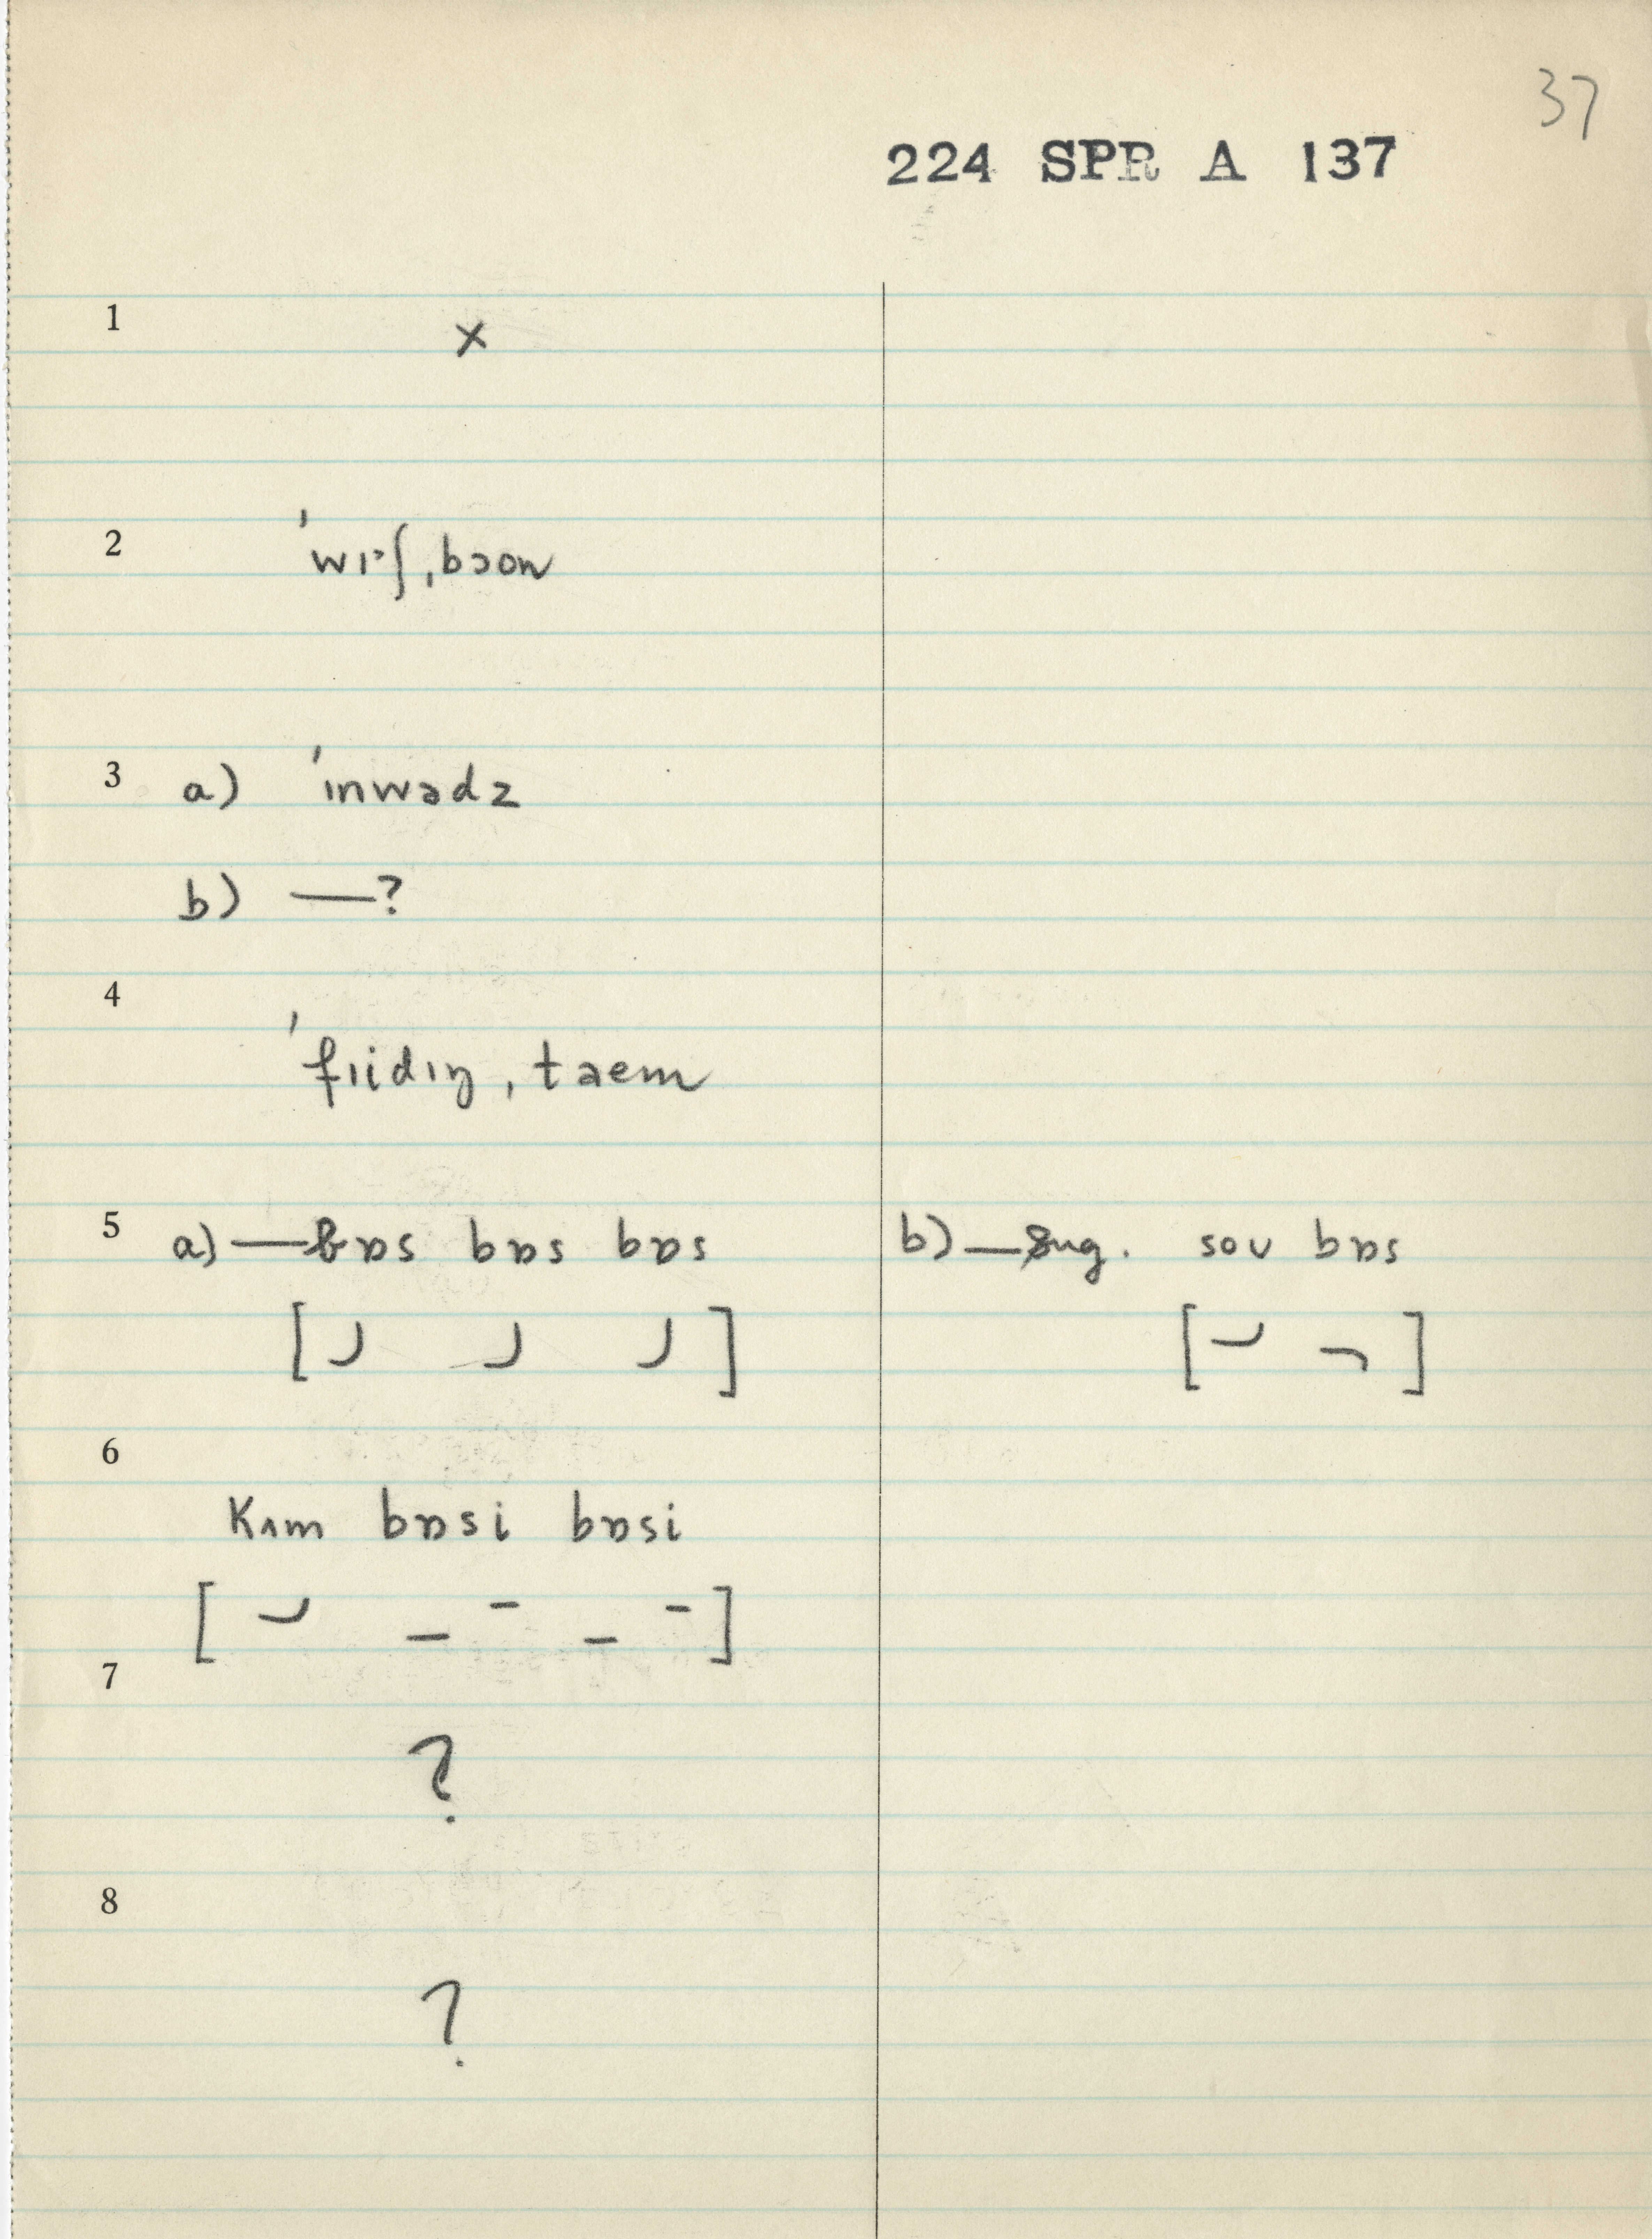 37
224 SPR A 137
1 x
2 ˈwɪˑʃˌbɔon
3 a) ˈɪnwədz
b) —?
4 ˈfɪidɪŋˌtaem
5 a) — bɒs bɒs bɒs b) — sug. sov bɒs
[ ]
[ ]
6
kʌm bɒsi bɒsi
[ ]
7
?
8
?